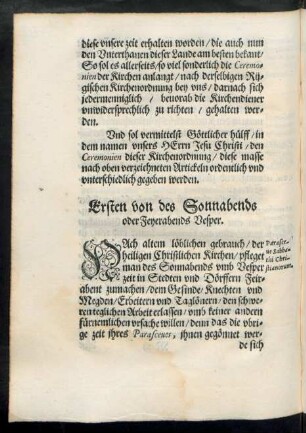 diese vnsere zeit erhalten worden / die auch nun
den Vnterthanen dieser Lande am besten bekant /
So sol es allerseits / so viel sonderlich die Ceremo-
nien der Kirchen anlangt / nach derselbigen Rü-
gischen Kirchenordnung bey vns / darnach sich
jedermenniglich / beuorab die Kirchendiener
vnwidersprechlich zu richten / gehalten wer-
den.
Vnd sol vermittelst Göttlicher hülff / in
dem namen vnsers HErrn Jesu Christi / den
Ceremonien dieser Kirchenordnung / diese masse
nach oben verzeichneten Artickeln ordentlich vnd
vnterschiedlich gegeben werden.
Ersten von des Sonnabends
oder Feyerabends Vesper.
NAch altem löblichen gebrauch / der
heiligen Christlichen Kirchen / pfleget
man des Sonnabends vmb Vesper
zeit in Stedten vnd Dörffern Feir-
abent zumachen / dem Gesinde / Knechten vnd
Megden / Erbeitern vnd Taglönern / den schwe-
ren teglichen Arbeit erlassen / vmb keiner andern
fürnemlichen vrsache willen / denn das die vbri-
ge zeit ihres Parasceues, ihnen gegönnet wer-
de sich
Parasce-
ue Sabba-
thi Chri-
stianorum.